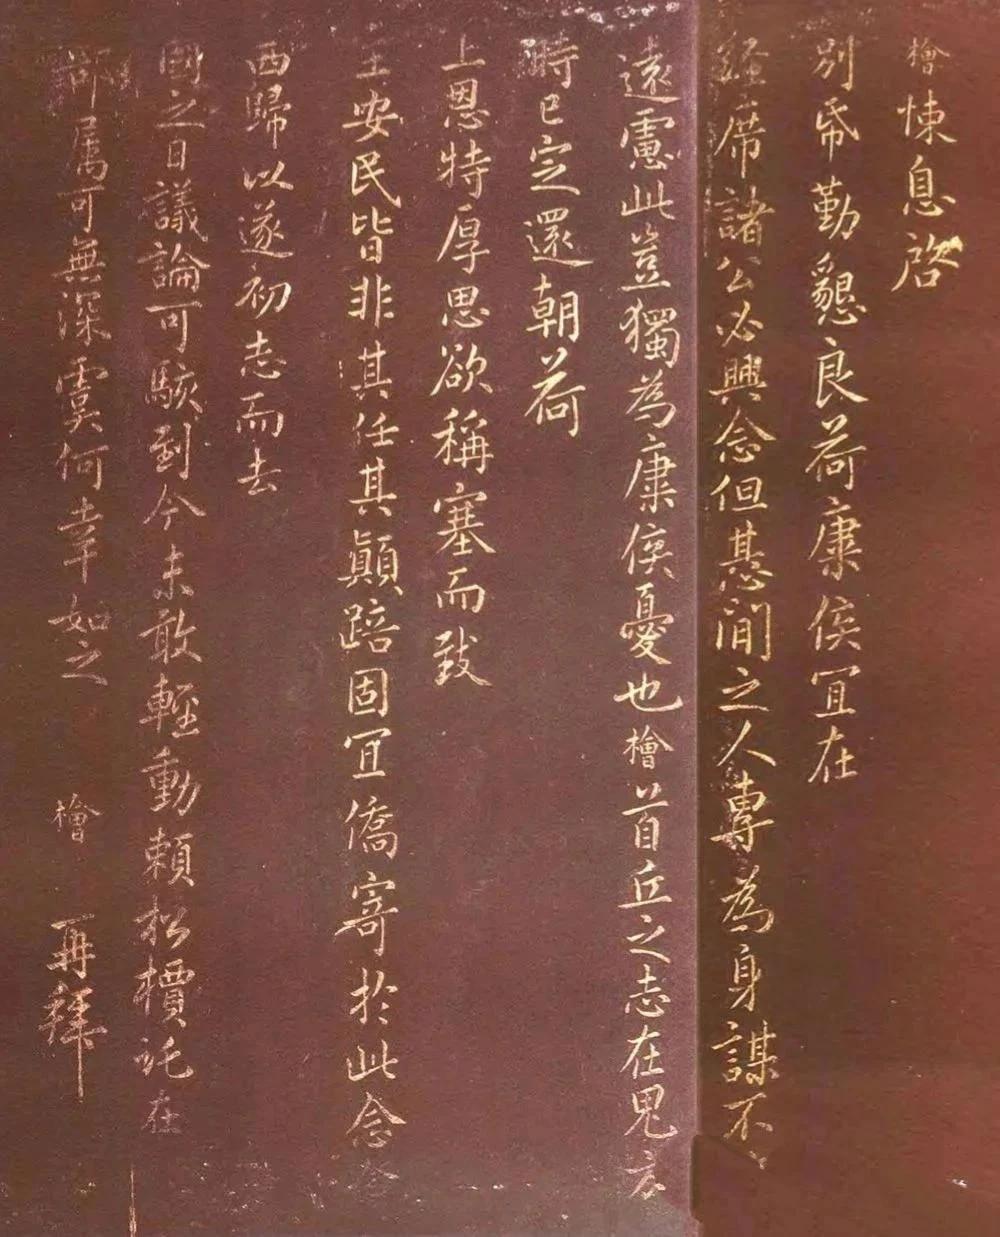 檜悚息啓
別帋勤懇良荷康侯宜在
經席諸公必興念但恐閒之人專為身謀不
遠慮此豈獨為康侯憂也檜首丘之志在鬼
時已定還朝荷
上恩特厚思欲稱塞而致
主安民皆非其任其顛踣固宜僑寄於此念
西歸以遂初志而去
國之日議論可駭到今未敢輕動賴松檟託在
部屬可無深虞何幸如之 檜 再拜